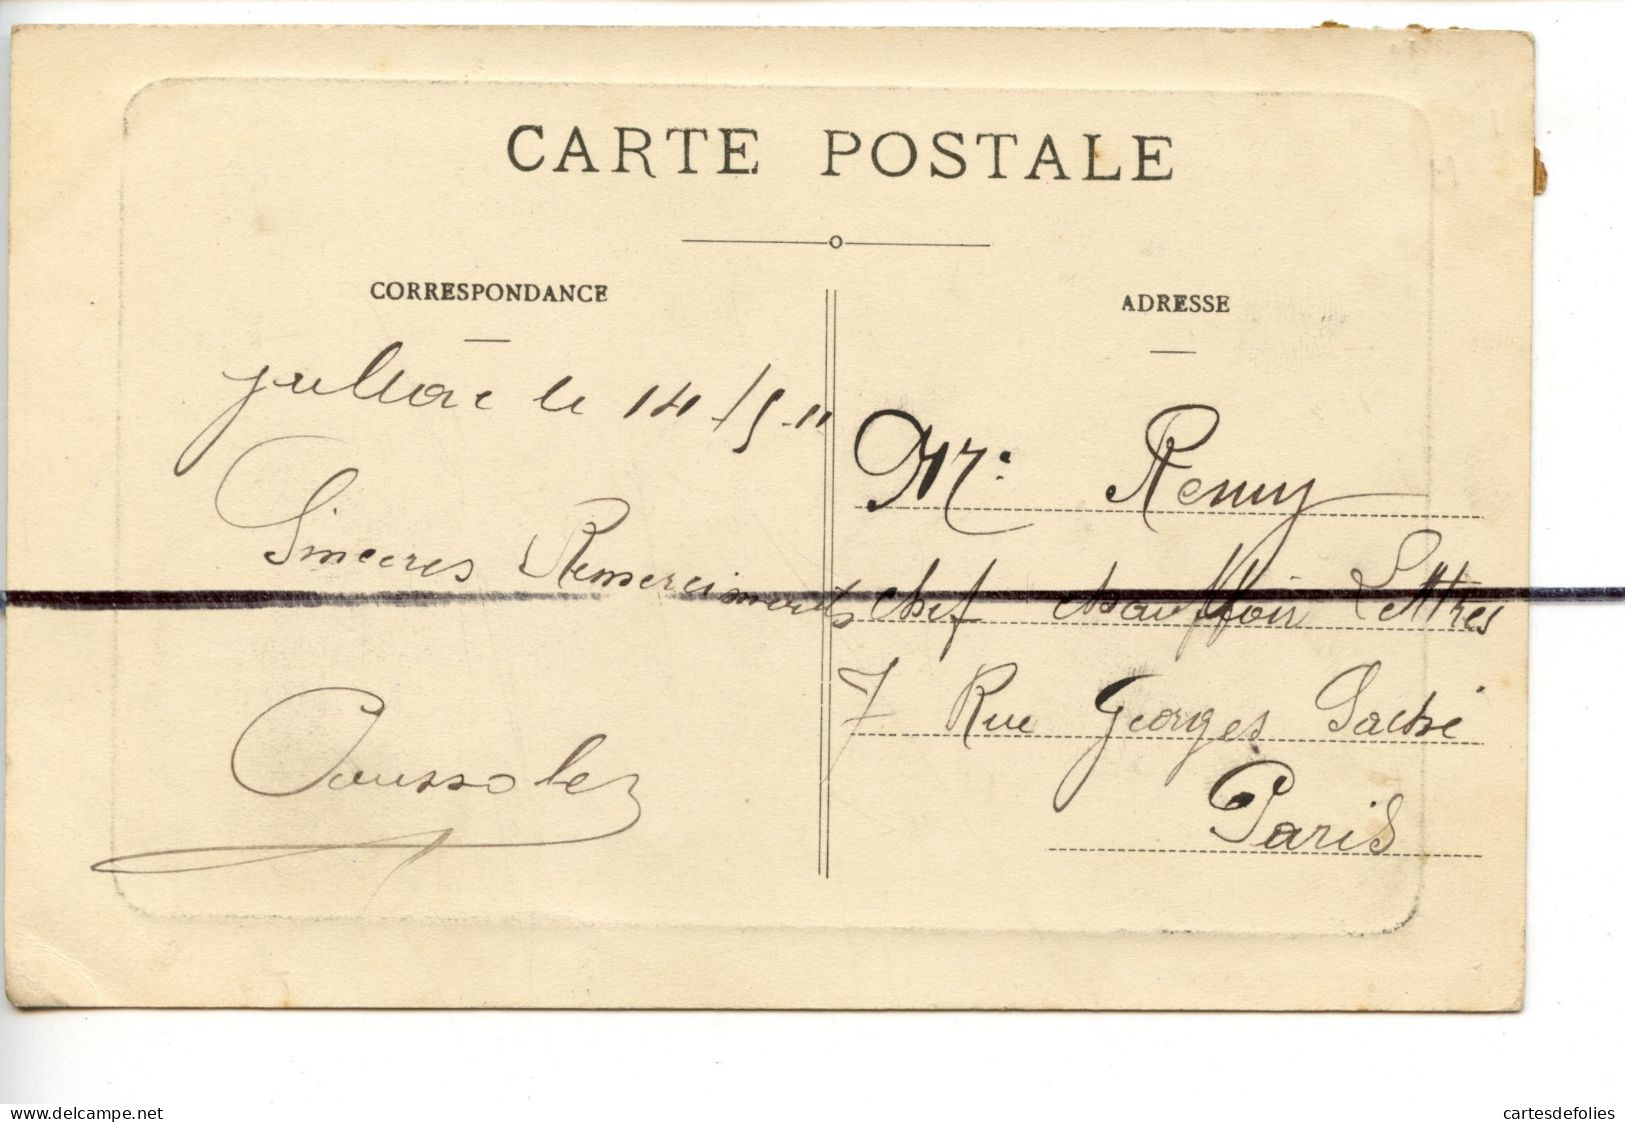 CARTE POSTALE
CORRESPONDANCE
ADRESSE
Julliac le 14/5-11
Sinceres Remerciments
Mr: Remy
chef chauffoir Lettres
7 Rue Georges Saché
Paris
www.delcampe.net
cartesdefolies